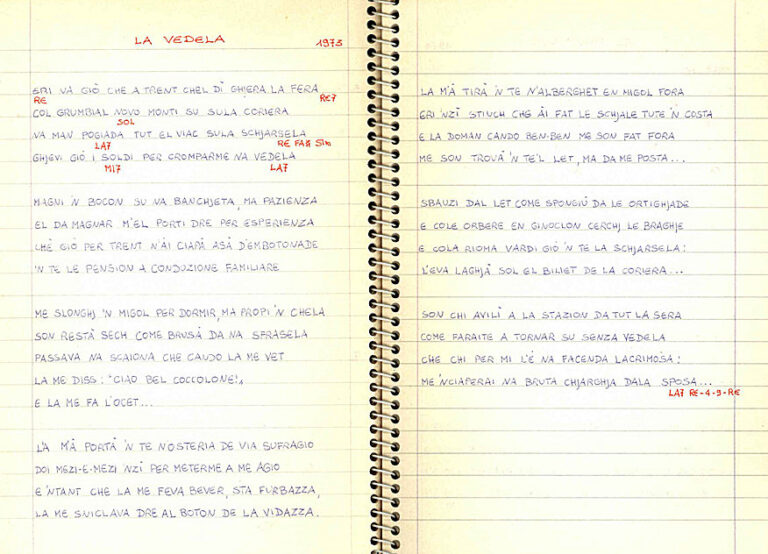 LA VEDELA 1973
ERI VA GIÒ CHE A TRENT CHEL DÌ GH'ERA LA FERA
RE RE7
COL GRUMBIAL NOVO MONTI SU SULA CORIERA
SOL
NA MAN POGIADA TUT EL VIAC SULA SCHJARSELA
LA7 RE FA# SIm
GHJEVI GIÒ I SOLDI PER CROMPARME NA VEDELA
MI7 LA7
MAGNI 'N BOCON SU NA BANCHJETA, MA PAZIENZA
EL DA MAGNAR M'EL PORTI DRE PER ESPERIENZA
CHÉ GIÒ PER TRENT N'ÀI CIAPÀ ASÀ D'EMBOTONADE
'N TE LE PENSION A CONDUZIONE FAMILIARE
ME SLONGHJ 'N MIGOL PER DORMIR, MA PROPI 'N CHELA
SON RESTÀ SECH COME BRUSÀ DA NA SFRASELA
PASSAVA NA SCAIONA CHE CAUDO LA ME VET
LA ME DISS: "CIAO BEL COCCOLONE!",
E LA ME FA L'OCET...
LA M'À PORTÀ 'N TE NOSTERIA DE VIA SUFRAGIO
DOI MEZI-E-MEZI NZÌ PER METERME A ME AGIO
E 'NTANT CHE LA ME FEVA BEVER, STA FURBAZZA,
LA ME SNICLAVA DRE AL BOTON DE LA VIDAZZA.
LA M'À TIRÀ 'N TE N'ALBERGHET EN MIGOL FORA
ERI 'NZÌ STINCH CHE ÀI FAT LE SCHJALE TUTE 'N COSTA
E LA DOMAN CANDO BEN-BEN ME SON FAT FORA
ME SON TROVÀ 'N TE'L LET, MA DA ME POSTA...
SBAUZI DAL LET COME SPONGIÙ DA LE ORTIGHJADE
E COLE ORBERE EN GINOCLON CERCHJ LE BRAGHJE
E COLA RIOMA VARDI GIÒ 'N TE LA SCHJARSELA:
L'EVA LAGHJÀ SOL EL BILIET DE LA CORIERA...
SON CHI AVILÌ A LA STAZION DA TUT LA SERA
COME FARAITE A TORNAR SU SENZA VEDELA
CHE CHI PER MI L'É NA FACENDA LACRIMOSA:
ME 'NCIAPERAI NA BRUTA CHJARGHJA DALA SPOSA...
LA7 RE-4-9-RE